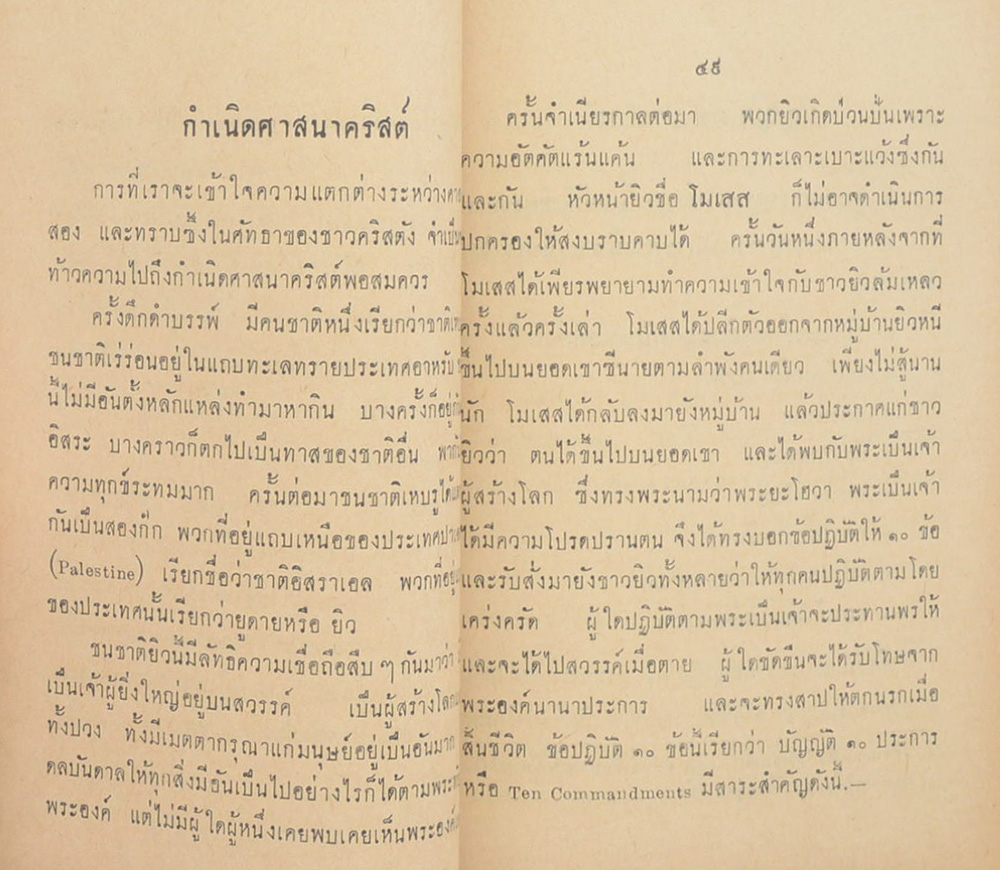 กำเนิดศาสนาคริสต์
การที่เราจะเข้าใจความแตกต่างระหว่าง
สอง และทราบซึ้งในศัทธาของชาวคริสตัง
ท้าวความไปถึงกำเนิดศาสนาคริสต์พอสมควร
ครั้งดึกดำบรรพ์ มีคนชาติหนึ่งเรียกว่าชาติ
ชนชาติเร่ร่อนอยู่ในแถบทะเลทรายประเทศอาหรับ
นี้ไม่มีอันตั้งหลักแหล่งทำมาหากิน บางครั้งก็อยู่
อิสระ บางคราวก็ตกไปเป็นทาสของชาติอื่น
ความทุกข์ระทมมาก ครั้นต่อมาชนชาติเหบรูได้
กันเป็นสองก๊ก พวกที่อยู่แถบเหนือของประเทศ
(Palestine) เรียกชื่อว่าชาติอิสราเอล พวกที่อยู่
ของประเทศนั้นเรียกว่ายูดายหรือ ยิว
ชนชาติยิวนี้มีลัทธิความเชื่อถือสืบ ๆ กันมาว่า
เป็นเจ้าผู้ยิ่งใหญ่อยู่บนสวรรค์ เป็นผู้สร้างโลก
ทั้งปวง ทั้งมีเมตตากรุณาแก่มนุษย์อยู่เป็นอันมาก
ดลบันดาลให้ทุกสิ่งมีอันเป็นไปอย่างไรก็ได้ตาม
พระองค์ แต่ไม่มีผู้ใดผู้หนึ่งเคยพบเคยเห็นพระองค์
๔๙
ครั้นจำเนียรกาลต่อมา พวกยิวเกิดป่วนปั่นเพราะ
ความอัตคัตแร้นแค้น และการทะเลาะเบาะแว้งซึ่งกัน
และกัน หัวหน้ายิวชื่อ โมเสส ก็ไม่อาจดำเนินการ
ปกครองให้สงบราบคาบได้ ครั้นวันหนึ่งภายหลังจากที่
โมเสสได้เพียรพยายามทำความเข้าใจกับชาวยิวล้มเหลว
ครั้งแล้วครั้งเล่า โมเสสได้ปลีกตัวออกจากหมู่บ้านยิวหนี
ขึ้นไปบนยอดเขาซีนายตามลำพังคนเดียว เพียงไม่สู้นาน
นัก โมเสสได้กลับลงมายังหมู่บ้าน แล้วประกาศแก่ชาว
ยิวว่า ตนได้ขึ้นไปบนยอดเขา และได้พบกับพระเป็นเจ้า
ผู้สร้างโลก ซึ่งทรงพระนามว่าพระยะโฮวา พระเป็นเจ้า
ได้มีความโปรดปรานตน จึงได้ทรงบอกข้อปฏิบัติให้ ๑๐ ข้อ
และรับสั่งมายังชาวยิวทั้งหลายว่าให้ทุกคนปฏิบัติตามโดย
เคร่งครัด ผู้ใดปฏิบัติตามพระเป็นเจ้าจะประทานพรให้
และจะได้ไปสวรรค์เมื่อตาย ผู้ใดขัดขืนจะได้รับโทษจาก
พระองค์นานาประการ และจะทรงสาปให้ตกนรกเมื่อ
สิ้นชีวิต ข้อปฏิบัติ ๑๐ ข้อนี้เรียกว่า บัญญัติ ๑๐ ประการ
หรือ Ten Commandments มีสาระสำคัญดังนี้.—